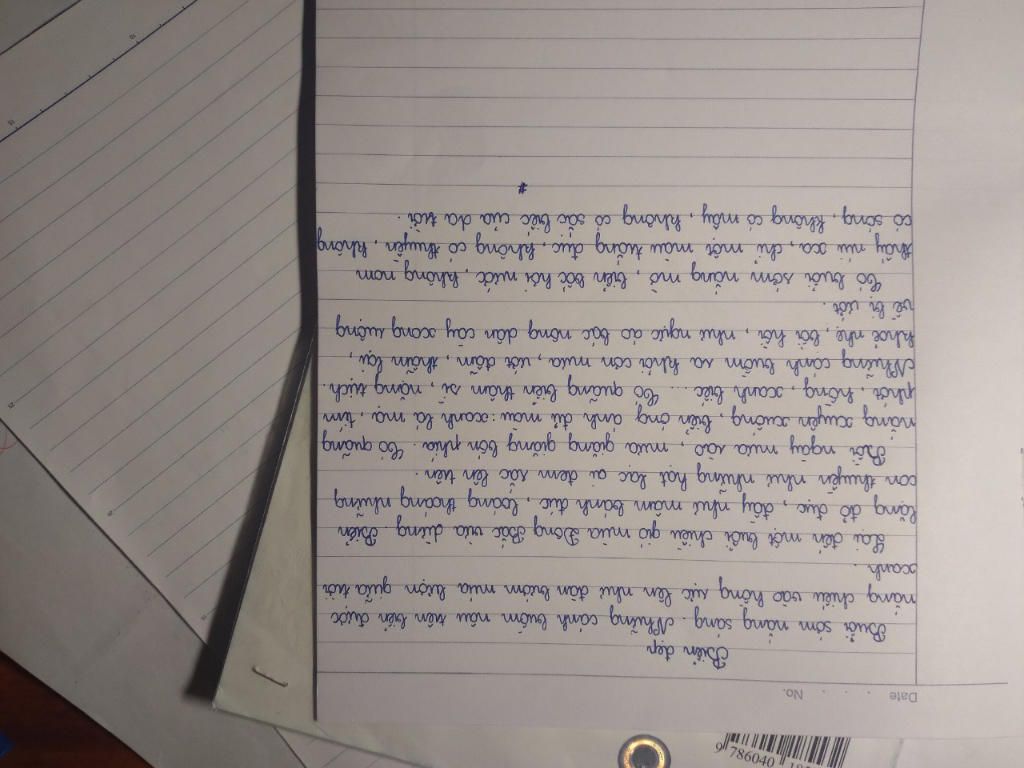 9 786040
Date . . . . No.
Biển đẹp
Buổi sớm nắng sáng. Những cánh buồm nâu trên biển được
nắng chiếu vào hồng rực lên như đàn bướm múa lượn giữa trời
xanh.
Lại đến một buổi chiều gió mùa Đông Bắc vừa dừng. Biển
lặng đỏ đục, đầy như mâm bánh đúc, loáng thoáng những
con thuyền như những hạt lạc ai đem rắc lên trên.
Rồi ngày mưa rào, mưa giăng giăng bốn phía. Có quãng
nắng xuyên xuống, biển óng ánh đủ màu: xanh lá mạ, tím
phớt, hồng, xanh biếc... Có quãng biển thâm sì, nặng trịch.
Những cánh buồm ra khỏi cơn mưa, ướt đẫm, thẫm lại,
khoẻ nhẹ, bồi hồi, như ngực áo bác nông dân cày xong ruộng
về bị ướt.
Có buổi sớm nắng mờ, biển bốc hơi nước, không nom
thấy núi xa, chỉ một màu trắng đục, không có thuyền, không
có sóng, không có mây, không có sắc biếc của da trời.
#